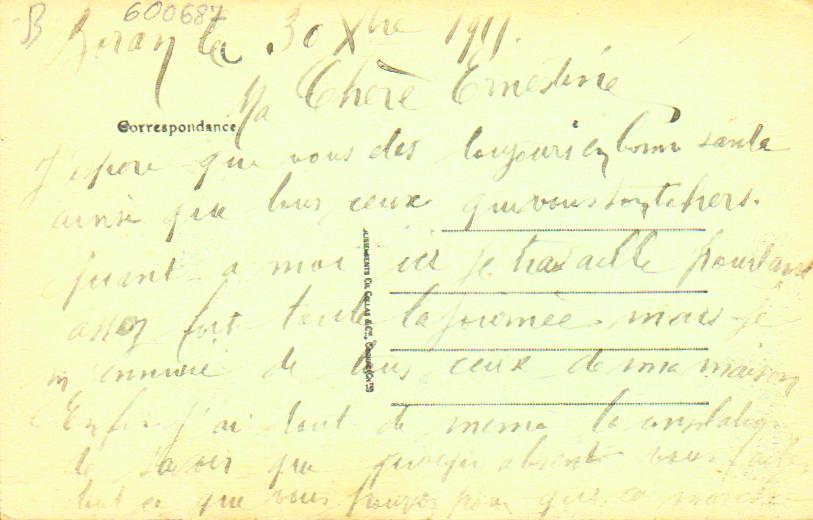 B 600687
Boran le 30 Xbre 1911.
Ma Chère Ernestine
Correspondance
J'espère que vous êtes toujours en bonne santé
ainsi que tous ceux qui vous sont chers.
Quant a moi ici je travaille pourtant
assez fort toute la journée mais je
m'ennuie de tous ceux de ma maison
Enfin j'ai tout de meme la consolation
de savoir que quoique absent vous faites
tout ce que vous pouvez pour que ça marche